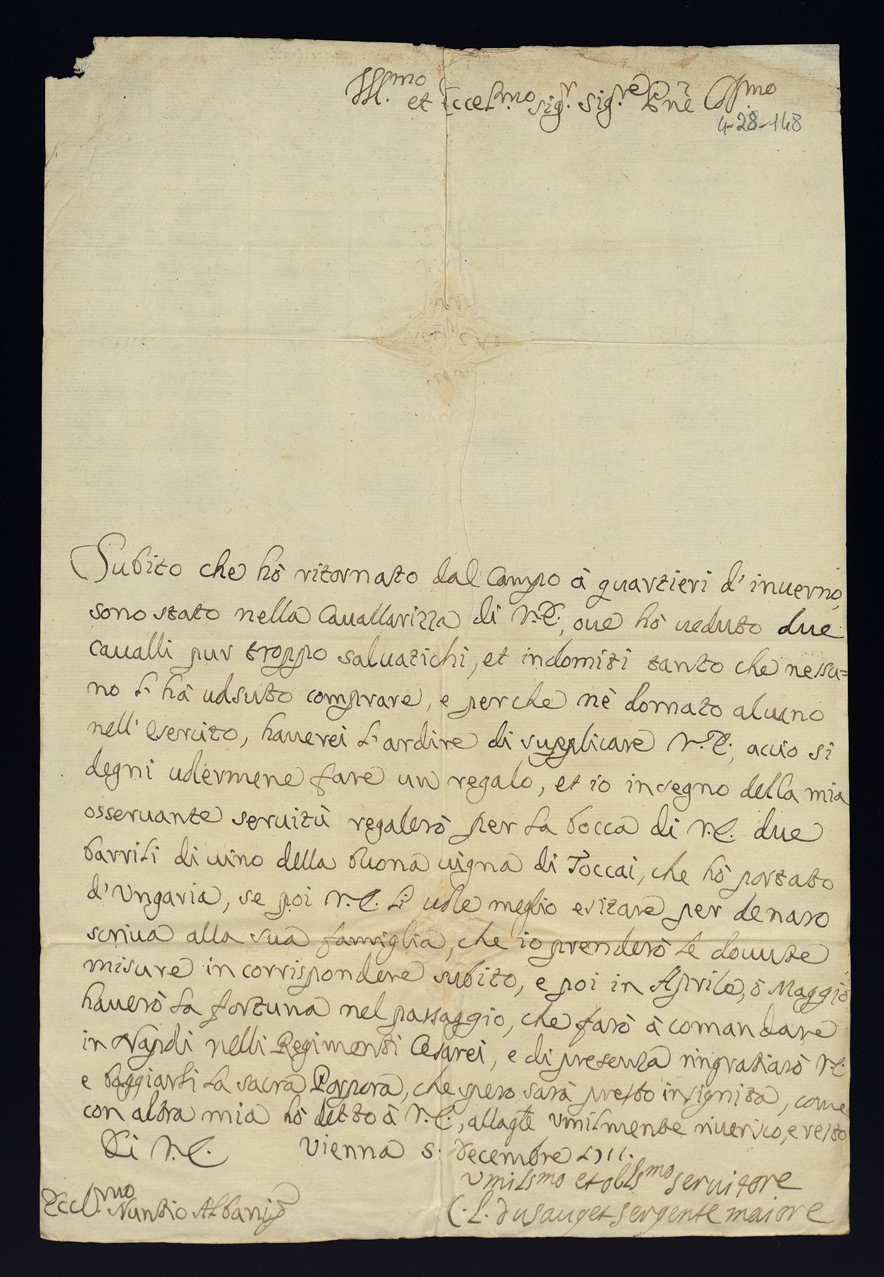 Ill.mo et Eccel.mo Sig.r Sig.re P͠ne Oss.mo
4-28-148
Subito che hò ritornato dal Campo à quartieri d'inuerno
sono stato nella Cauallarizza di V.E., oue hò ueduto due
caualli pur troppo saluatichi, et indomiti tanto che nessu=
no l'hà uolsuto comprare, e perche nè domato alcuno
nell'esercito, hauerei l'ardire di supplicare V.E., acciò si
degni uolermene fare un regalo, et io in segno della mia
osseruante seruitù regalerò per la bocca di V.E. due
barrili di uino della buona uigna di Toccai, che hò portato
d'Ungaria, se poi V.E. li uole meglio esitare per denaro
scriua alla sua famiglia, che io prenderò le douute
misure in corrispondere subito, e poi in Aprile, ò Maggio
hauerò la fortuna nel passaggio, che farò à comandare
in Napoli nelli Regimenti Cesarei, e di presenza ringratiarò V.E.
e baggiarli la sacra Porpora, che spero sarà presto insignita, come
con altra mia hò detto à V.E., alla qle umilmente riuerisco, e resto
Di V.E. Vienna 5: Decembre 1711.
Umiliss.mo et obl.mo seruitore
Eccl.mo Nuntio Albani
C. L. Dusauget sergente maiore